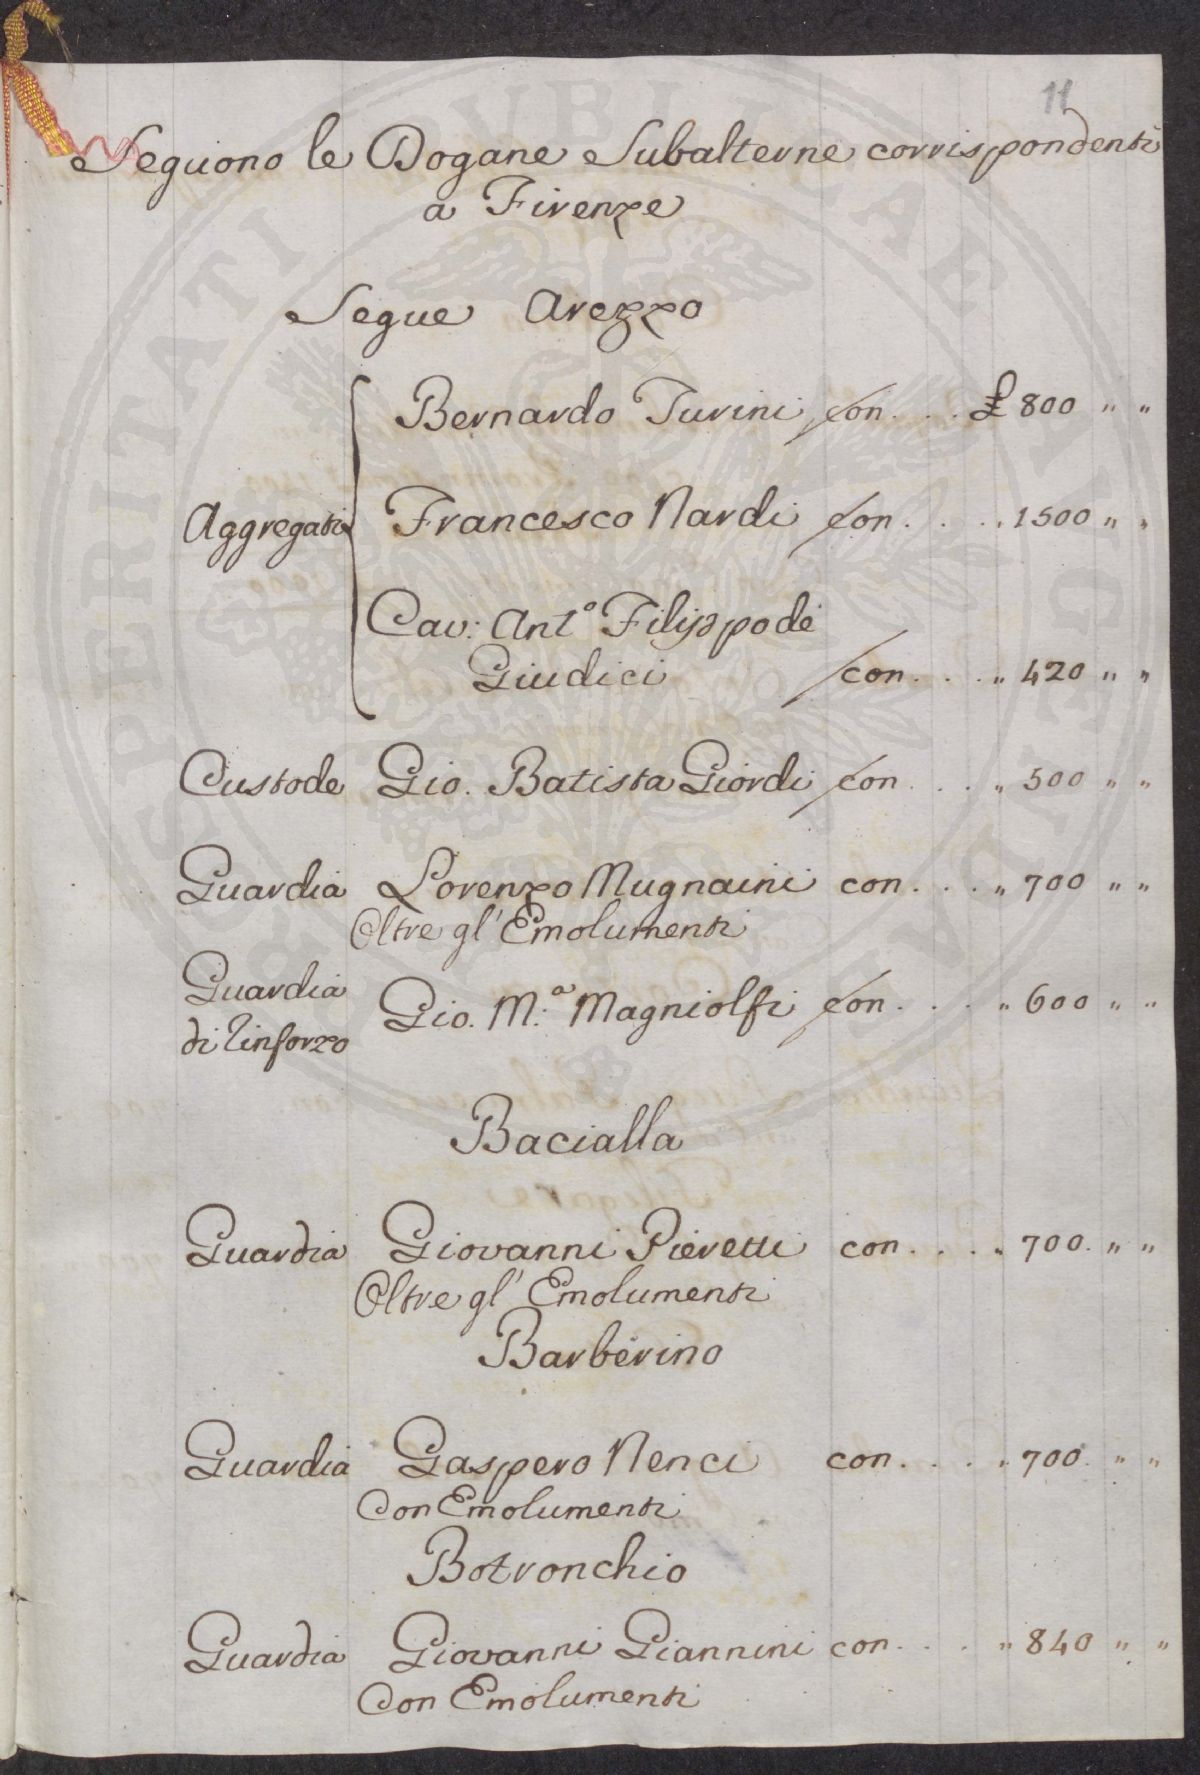 11
Seguono le Dogane Subalterne corrispondenti
a Firenze
Segue Arezzo
Bernardo Turini con . . . £ 800 " "
Aggregati Francesco Nardi con . . . . 1500 " "
Cav: Ant.º Filippo de
Giudici con . . . " 420 " "
Custode Gio. Batista Giordi con . . . " 500 " "
Guardia Lorenzo Mugnaini con . . . " 700 " "
Oltre gl' Emolumenti
Guardia
di Rinforzo Gio. M.ª Magniolfi con . . . " 600 " "
Bacialla
Guardia Giovanni Pieretti con . . . " 700 " "
Oltre gl' Emolumenti
Barberino
Guardia Gaspero Nenci con . . . " 700 " "
Con Emolumenti
Botronchio
Guardia Giovanni Giannini con . . . " 840 " "
Con Emolumenti